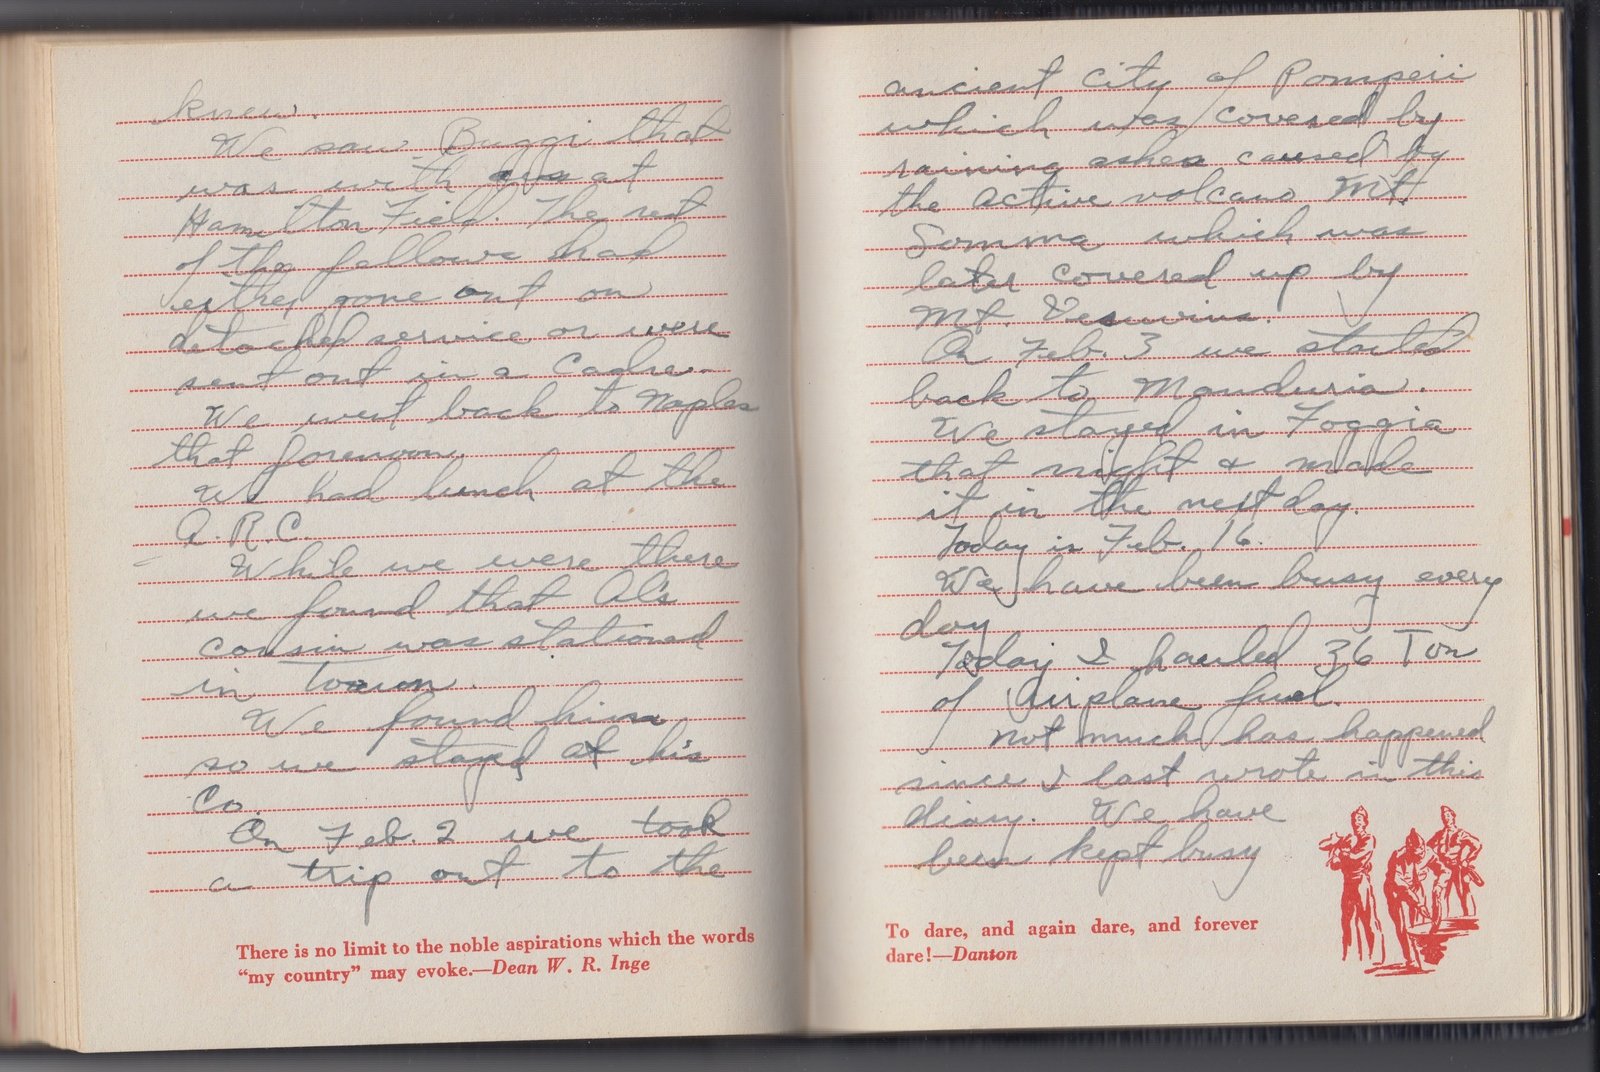 knew.
We saw Buggi that
was with us at
Hamilton Field. The rest
of the fellows had
either gone out on
detached service or were
sent out in a Cadre.
We went back to Naples
that forenoon.
We had lunch at the
A.R.C.
While we were there
we found that Al's
cousin was stationed
in Town.
We found him
so we stayed at his
Co.
On Feb. 2 we took
a trip out to the
There is no limit to the noble aspirations which the words
“my country” may evoke.—Dean W. R. Inge
ancient city of Pompeii
which was covered by
raining ashes caused by
the active volcano Mt.
Somma which was
later covered up by
Mt. Vesuvius.
On Feb. 3 we started
back to Manduria.
We stayed in Foggia
that night & made
it in the next day.
Today is Feb. 16.
We have been busy every
day
Today I hauled 36 Ton
of Airplane fuel.
Not much has happened
since I last wrote in this
diary. We have
been kept busy
To dare, and again dare, and forever
dare!—Danton